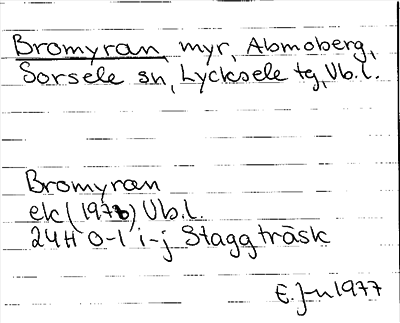 Bromyran, myr, Abmoberg,
Sorsele sn, Lycksele tg, Vb.l.
Bromyran
ek (1978) Vb.l.
24H 0-1 i-j Staggträsk
E. J-n 1977